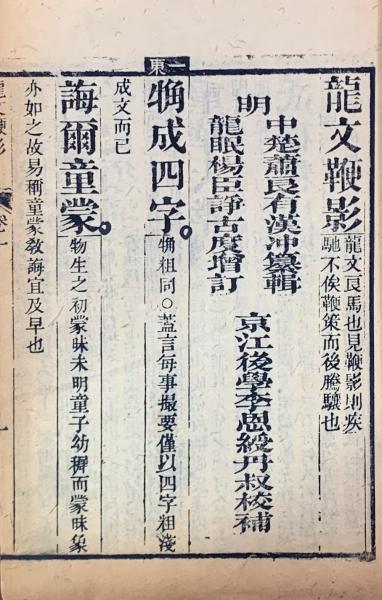 龍文鞭影
龍文良馬也見鞭影則疾
馳不俟鞭策而後騰驤也
明
中楚蕭良有漢冲纂輯
龍眠楊臣諍古度增訂
京江後學李恩綬丹叔校補
一東
觕成四字。觕粗同○蓋言每事撮要僅以四字粗淺
成文而已
誨爾童蒙。物生之初蒙昧未明童子幼穉而蒙昧象
亦如之故易稱童蒙教誨宜及早也